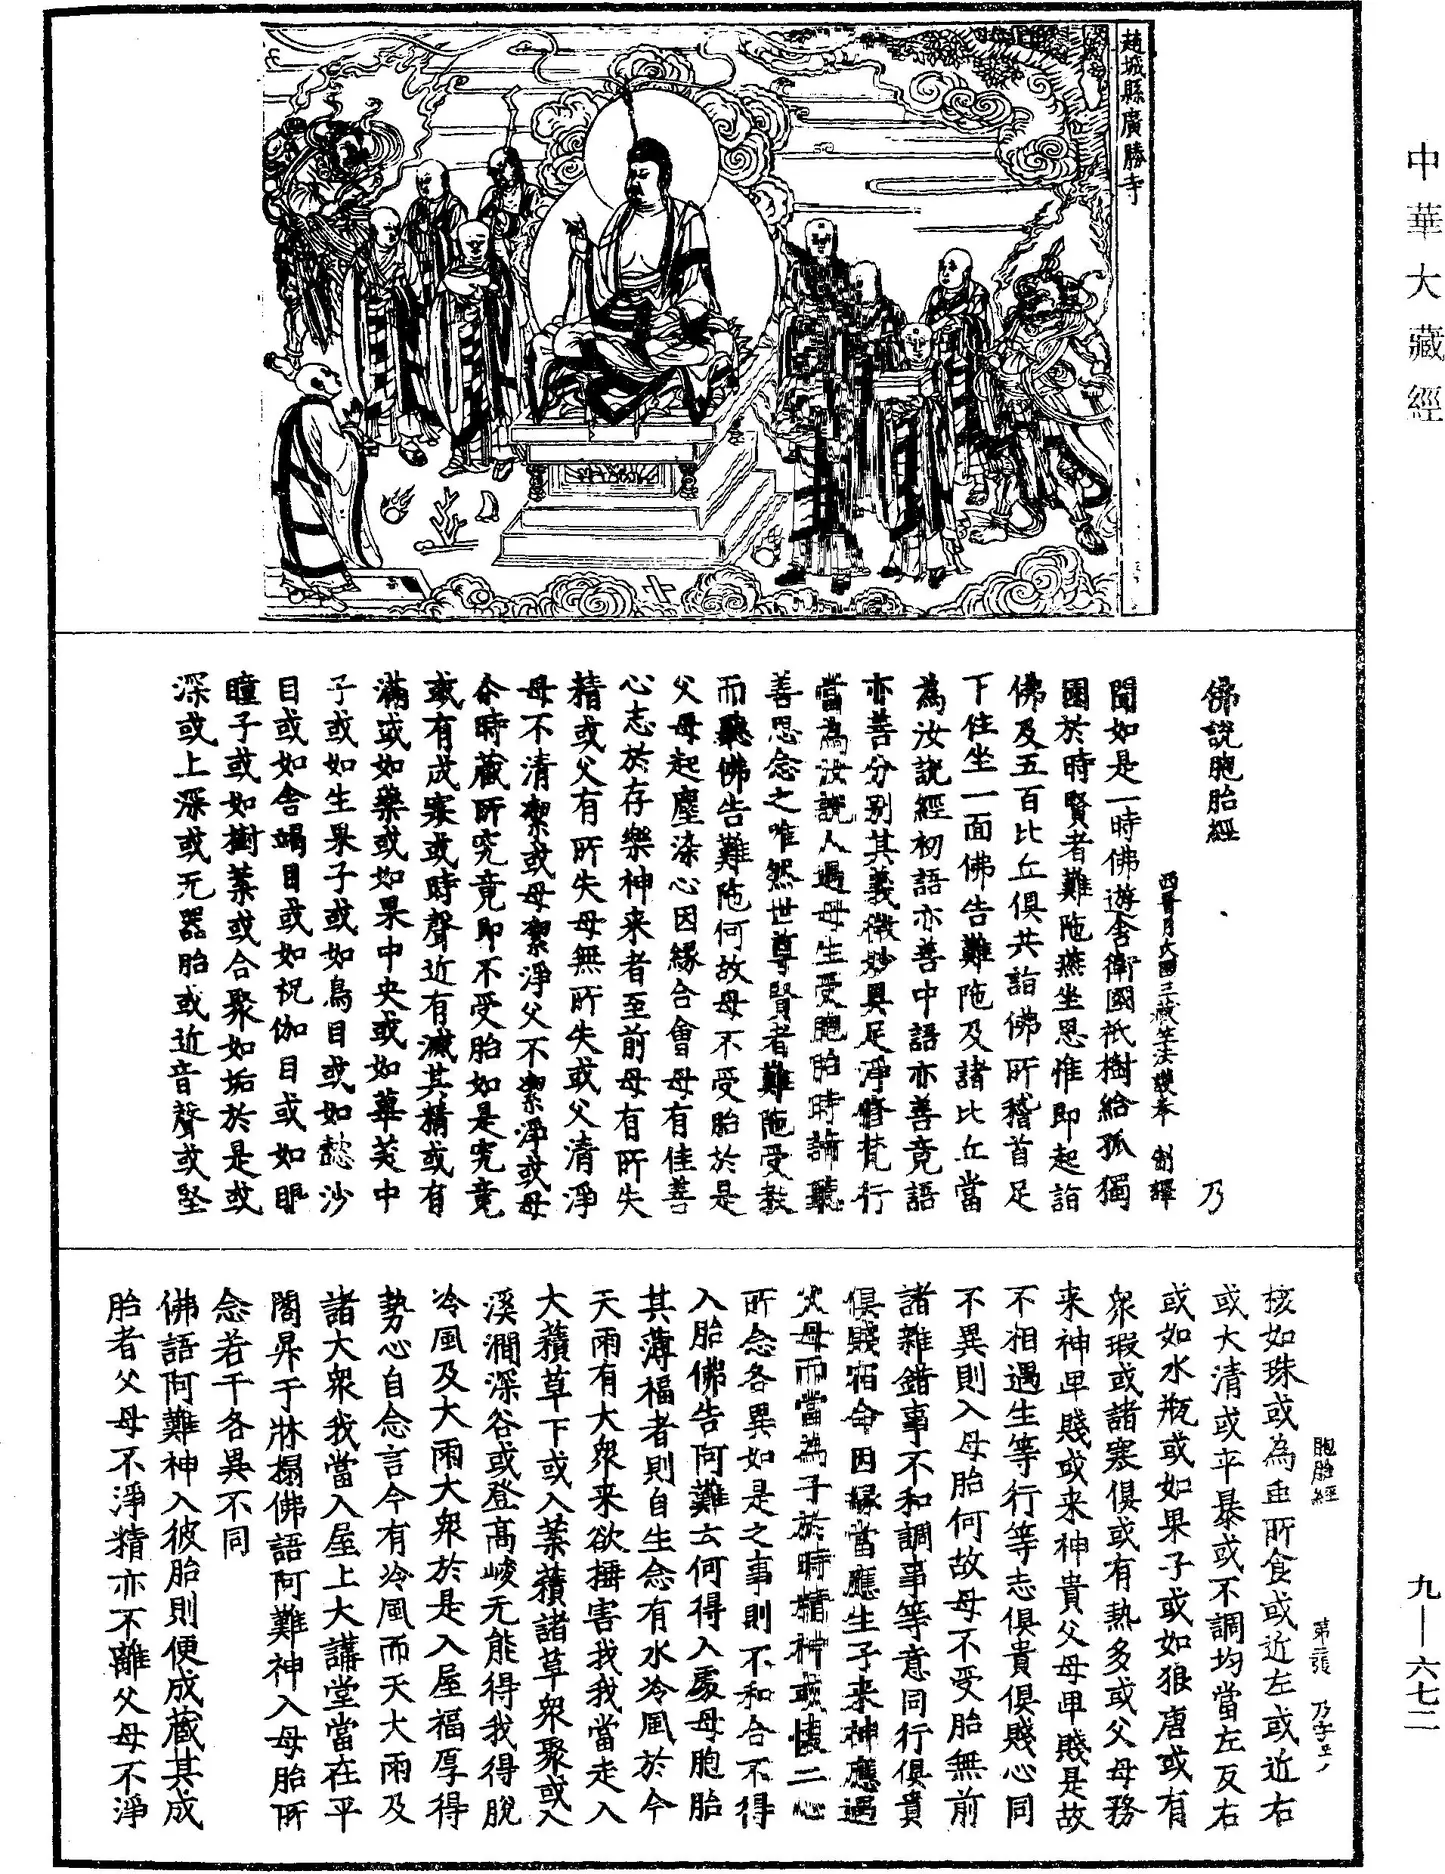 中華大藏經
趙城縣廣勝寺
佛說胞胎經 乃
西晉月氏國三藏竺法護奉 制譯
聞如是一時佛遊舍衛國祇樹給孤獨
園於時賢者難陁燕坐思惟即起詣
佛及五百比丘俱共詣佛所稽首足
下住坐一面佛告難陁及諸比丘當
為汝說經初語亦善中語亦善竟語
亦善分別其義微妙具足淨修梵行
當為汝說人遇母生受胞胎時諦聽
善思念之唯然世尊賢者難陁受教
而聽佛告難陁何故母不受胎於是
父母起塵染心因緣合會母有佳善
心志於存樂神来者至前母有所失
精或父有所失母無所失或父清淨
母不清潔或母潔淨父不潔淨或母
尒時藏所究竟即不受胎如是究竟
或有成寒或時聲近有滅其精或有
滿或如藥或如果中央或如蓽茇中
子或如生果子或如鳥目或如懿沙
目或如舍竭目或如祝伽目或如眼
瞳子或如樹葉或合聚如垢於是或
深或上深或无器胎或近音聲或堅
核如珠或為虫所食或近左或近右
或大清或卒暴或不調均當左反右
或如水瓶或如果子或如狼唐或有
衆瑕或諸寒俱或有熱多或父母務
来神卑賤或来神貴父母卑賤是故
不相遇生等行等志俱貴俱賤心同
不異則入母胎何故母不受胎無前
諸雜錯事不和調事等意同行俱貴
俱賤宿命因緣當應生子来神應遇
父母而當為子於時精神或懷二心
所念各異如是之事則不和合不得
入胎佛告阿難云何得入處母胞胎
其薄福者則自生念有水冷風於今
天雨有大衆来欲捶害我我當走入
大䕆草下或入葉䕆諸草衆聚或入
溪澗深谷或登高峻无能得我得脫
冷風及大雨大衆於是入屋福厚得
勢心自念言今有冷風而天大雨及
諸大衆我當入屋上大講堂當在平
閣昇于牀榻佛語阿難神入母胎所
念若干各異不同
佛語阿難神入彼胎則便成藏其成
胎者父母不淨精亦不離父母不淨
胞胎經 第二張 乃字号
九—六七二